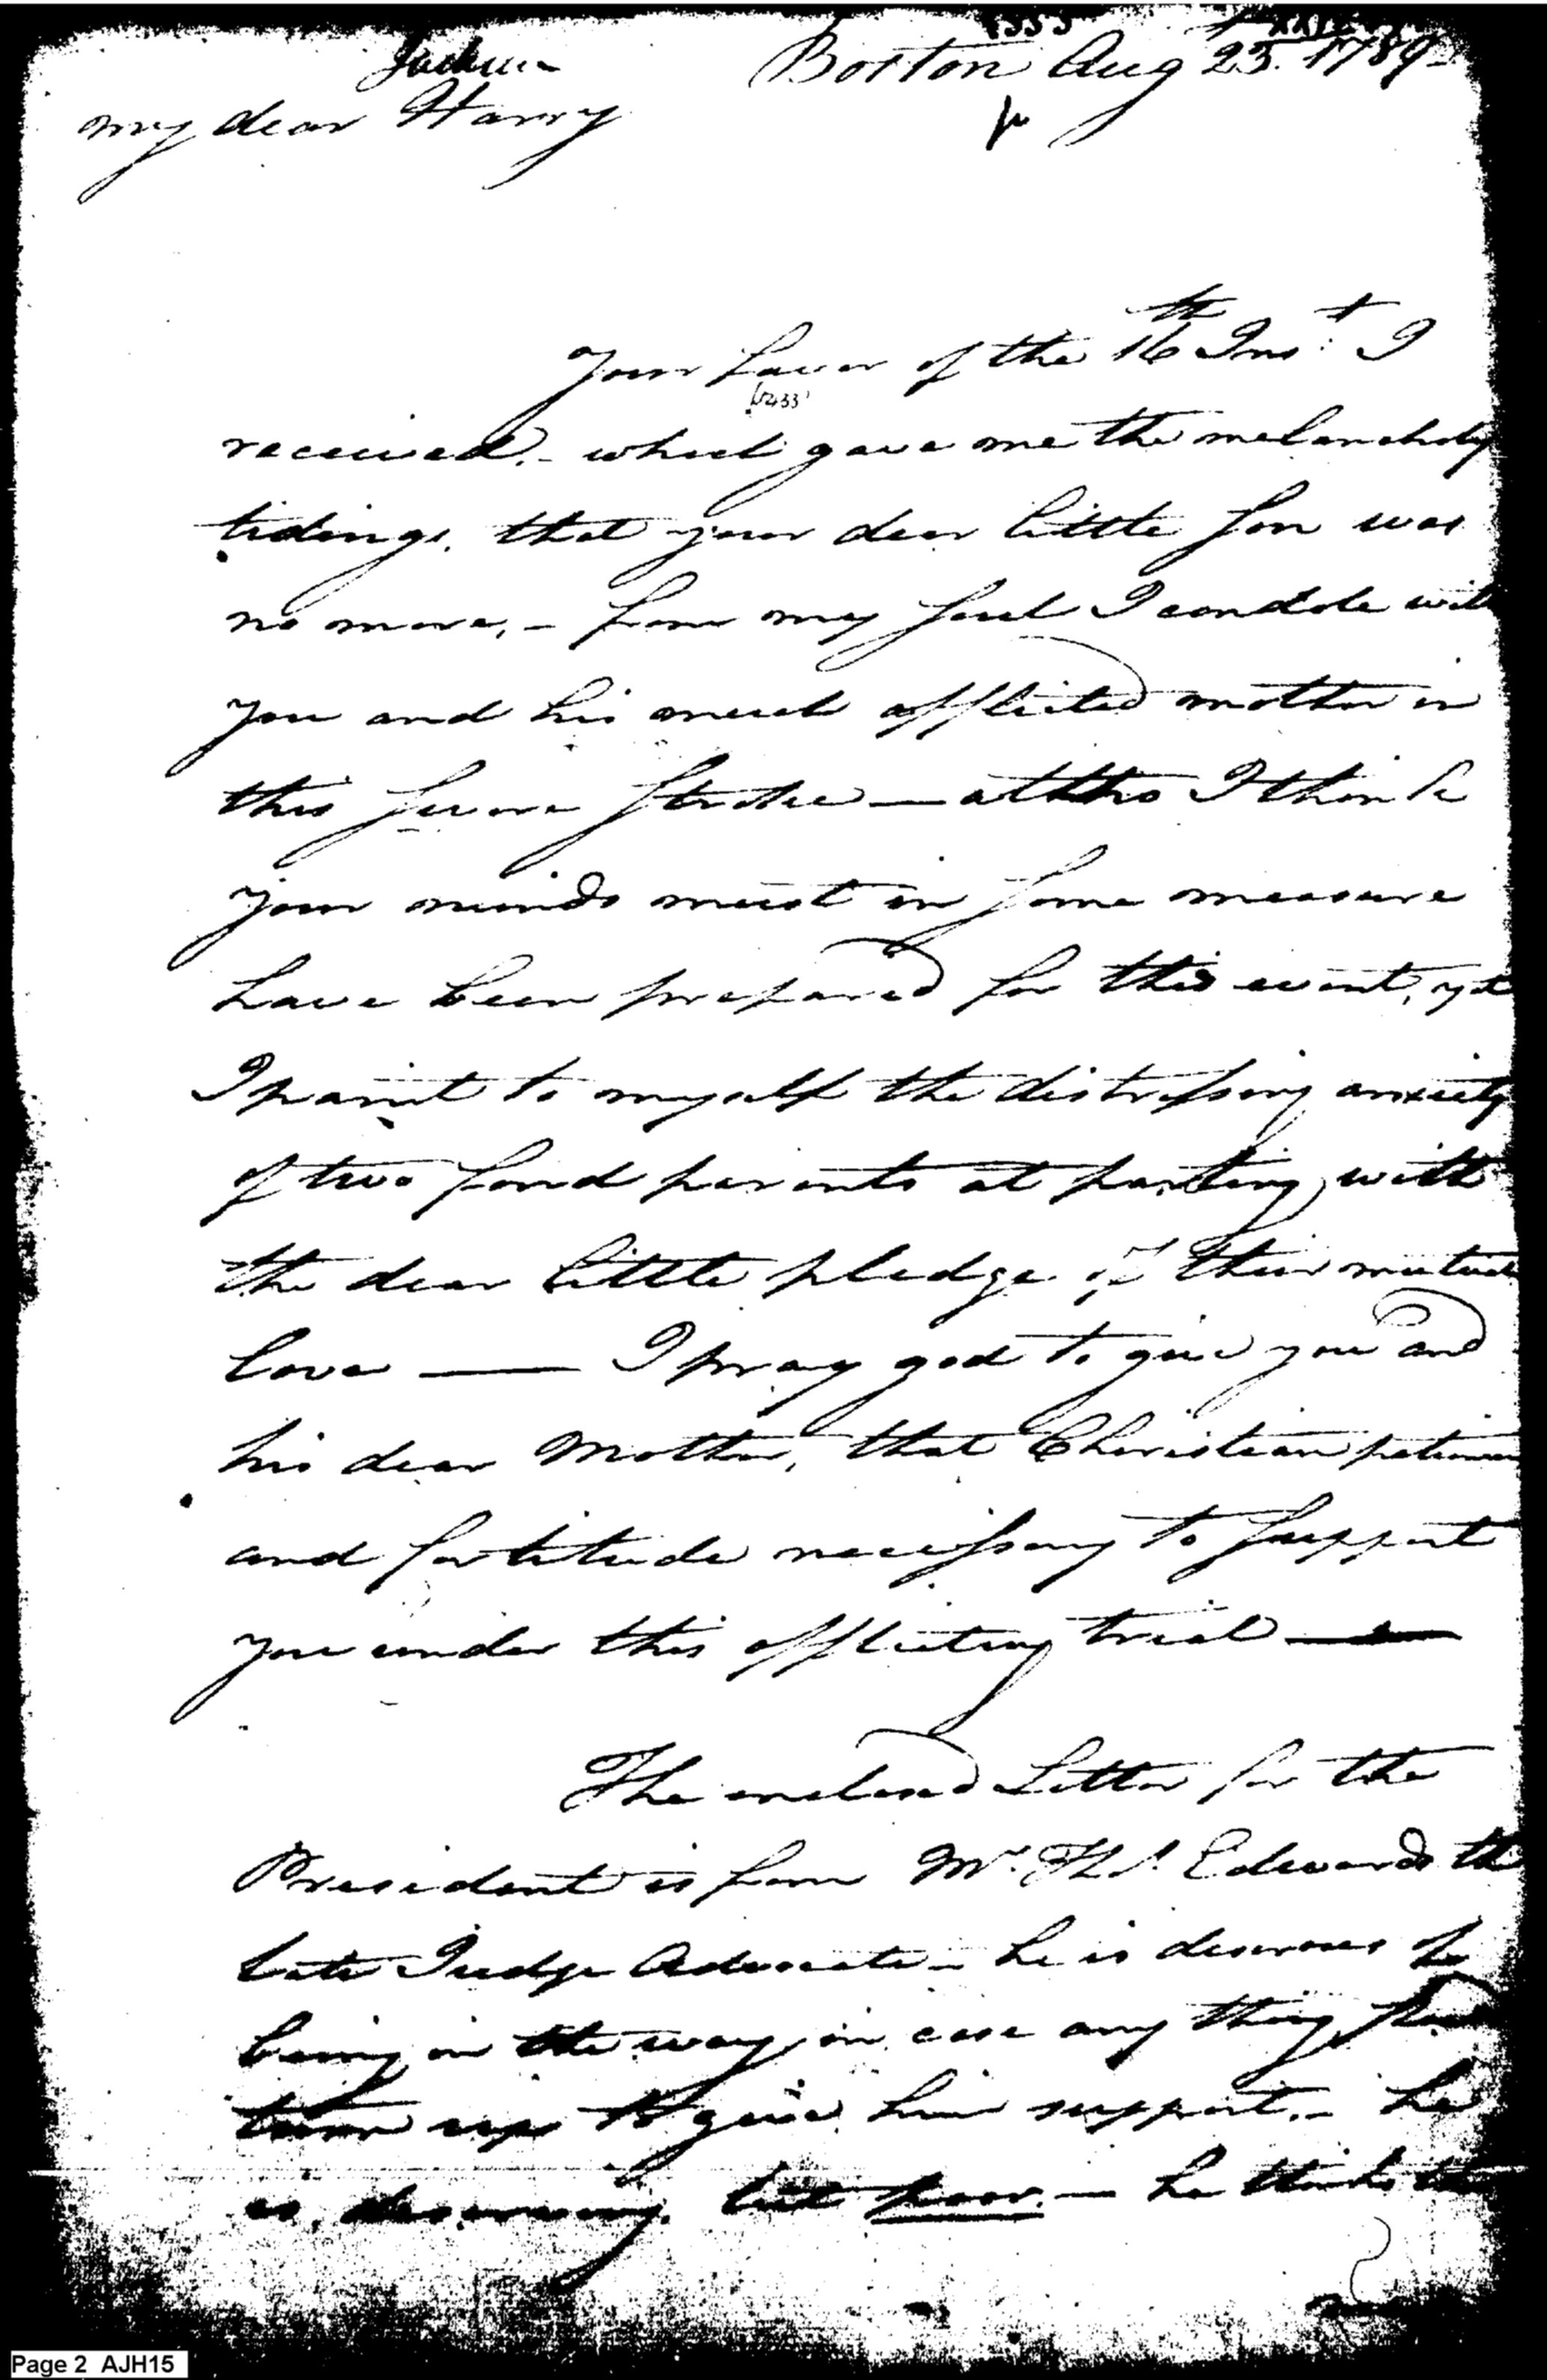 Jackson
Boston Aug 23. 1789
my dear Harry
Your favor of the 16th Inst. I
5433
received. – which gave me the melancholy
tidings. that your dear little son was
no more, – from my soul I condole with
you and his much afflicted mother in
this severe stroke — altho I think
your minds must in some measure
have been prepared for this event, yet
I paint to myself the distressing anxiety
of two fond parents at parting with
the dear little pledge of their mutual
love — I pray god to give you and
his dear Mother, that Christian patience
and fortitude necessary to support
you under this afflicting trial —
The enclosed Letter for the
President is from Mr. Ths. Edwards the
late Judge Advocate – he is desirous of
being in the way, in case any thing
turn up to give him support. – he
is deserving. but poor. – he thinks
Page 2 AJH15